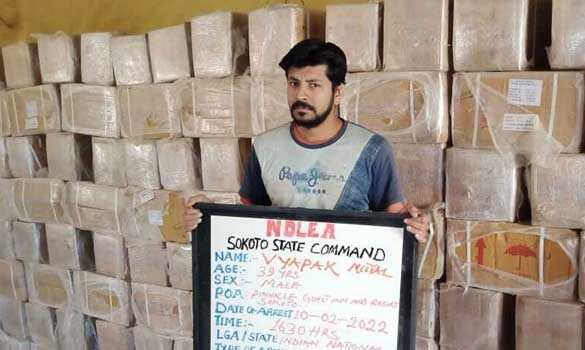 Pepe Jeans
NDLEA
SOKOTO STATE COMMAND
NAME:- VYAPAK MITTAL
AGE:- 39 YRS
SEX:- MALE
POA:- PINNACLE GUEST INN AND RESORT
SOKOTO
DATE OF ARREST 10-02-2022
TIME:- 1630 HRS
LGA/STATE INDIAN NATIONAL
TYPE OF